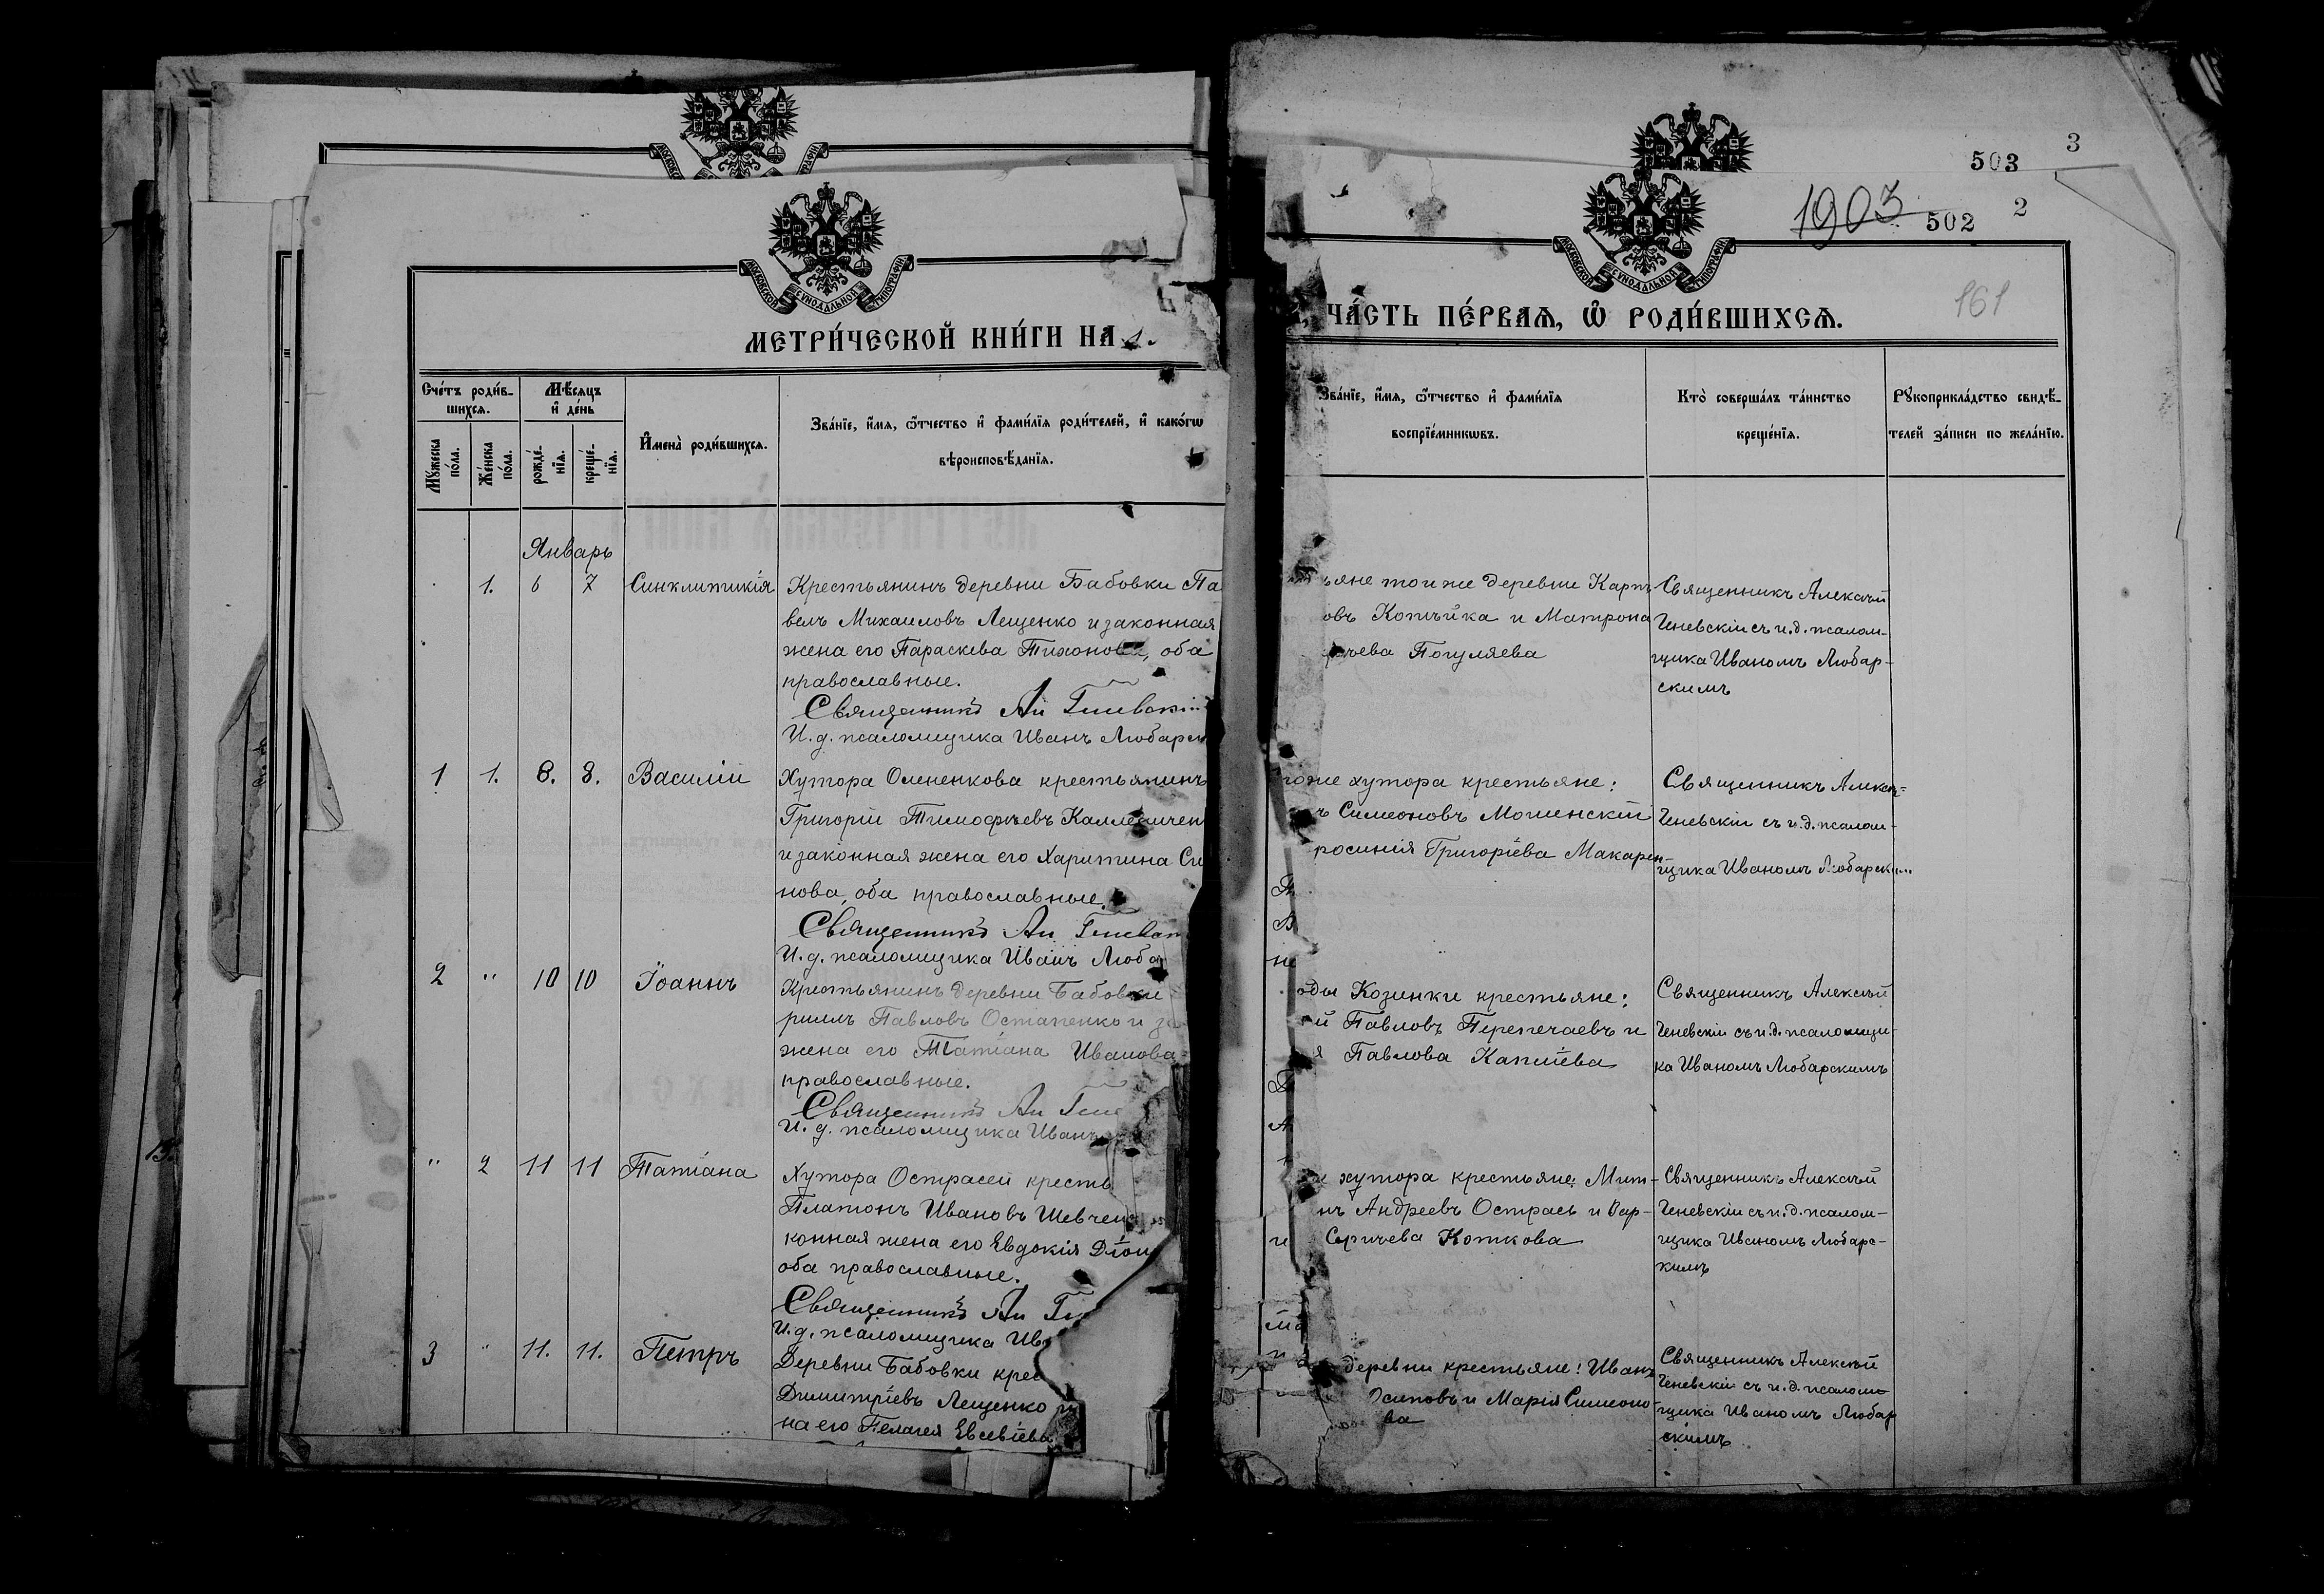 503 3
1903 502 2
161
МОСКОВСКОЙ СУНОДАЛЬНОЙ ТИПОГРАФІИ
МОСКОВСКОЙ СУНОДАЛЬНОЙ ТИПОГРАФІИ
МЕТРИ́ЧЕСКОЙ КНИ́ГИ НА 1
ЧА́СТЬ ПЕ́РВАѦ, Ѽ РОДИ́ВШИХСѦ.
Сче́тъ роди́в-
шихсѧ.
Мꙋжеска по́ла.
Же́нска по́ла.
Мѣ́сѧцъ
и҆ де́нь
рожде́-
нїѧ.
креще́-
нїѧ.
И҆мена̀ роди́вшихсѧ.
Зва́нїе, и҆́мѧ, ѻ҆́тчество и҆ фами́лїѧ роди́телей, и҆ како́гѡ
вѣроисповѣ́данїѧ.
Зва́нїе, и҆́мѧ, ѻ҆́тчество и҆ фами́лїѧ
воспрїе́мникѡвъ.
Кто̀ соверша́лъ та́инство
креще́нїѧ.
Рꙋкоприкла́дство свидѣ́-
телей за́писи по жела́нїю.
Январь
1. 6 7 Синклитикія
Крестьянинъ деревни Бабовки Па
велъ Михаиловъ Лещенко и законная
жена его Параскева, оба
православные.
Священникъ Ал Геневскій
И. д. псаломщика Иванъ Любарск
ьяне тои же деревни Карпъ
овъ Котъйка и Матрона
Погуляева
Священникъ Алексѣй
Геневскій съ и. д. псалом-
щика Иваномъ Любар-
скимъ
1 1. 8. 8. Василій
Хутора Олененкова крестьянинъ
Григорій Тимоѳѣевъ
и законная жена его Харитина Си
нова, оба православные.
Священникъ Ал Геневск
И. д. псаломщика Иванъ Люба
гоже хутора крестьяне:
ъ Симеоновъ Мошенскій
росинія Григоріева Макарен-
Священникъ Алексѣ-
Геневскій съ и. д. псалом-
щика Иваномъ Любарским
2 " 10 10 Іоаннъ
Крестьянинъ деревни Бабовки
риллъ Павловъ Остапенко и за
жена его Татіана Иванова
православные.
Священникъ Ал Гене
И. д. псаломщика Иванъ
оды Козинки крестьяне:
й Павловъ Перепечаевъ и
я Павлова Капшева
Священникъ Алексѣй
Геневскій съ и. д. псаломщи-
ка Иваномъ Любарскимъ
" 2 11 11 Татіана
Хутора Острасей кресть
Платонъ Ивановъ Шевчен
конная жена его Евдокія Діон
оба православные.
Священникъ Ал Ге
И. д. псаломщика Ив
хутора крестьяне: Мит-
нъ Андреевъ Острась и Вар-
Сергѣева Коткова
Священникъ Алексѣй
Геневскій съ и. д. псалом-
щика Иваномъ Любарс-
кимъ
3 " 11. 11. Петръ
Деревни Бабовки крес
Димитріевъ Лещенко и
на его Пелагея Евсевіева
деревни крестьяне: Иванъ
Осиповъ и Марія Симеоно-
ва
Священникъ Алексѣй
Геневскій съ и. д. псалом-
щика Иваномъ Любар
скимъ